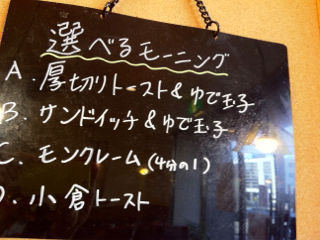 選べるモーニング
A. 厚切りトースト&ゆで玉子
B. サンドイッチ&ゆで玉子
C. モンクレーム(4分の1)
D. 小倉トースト